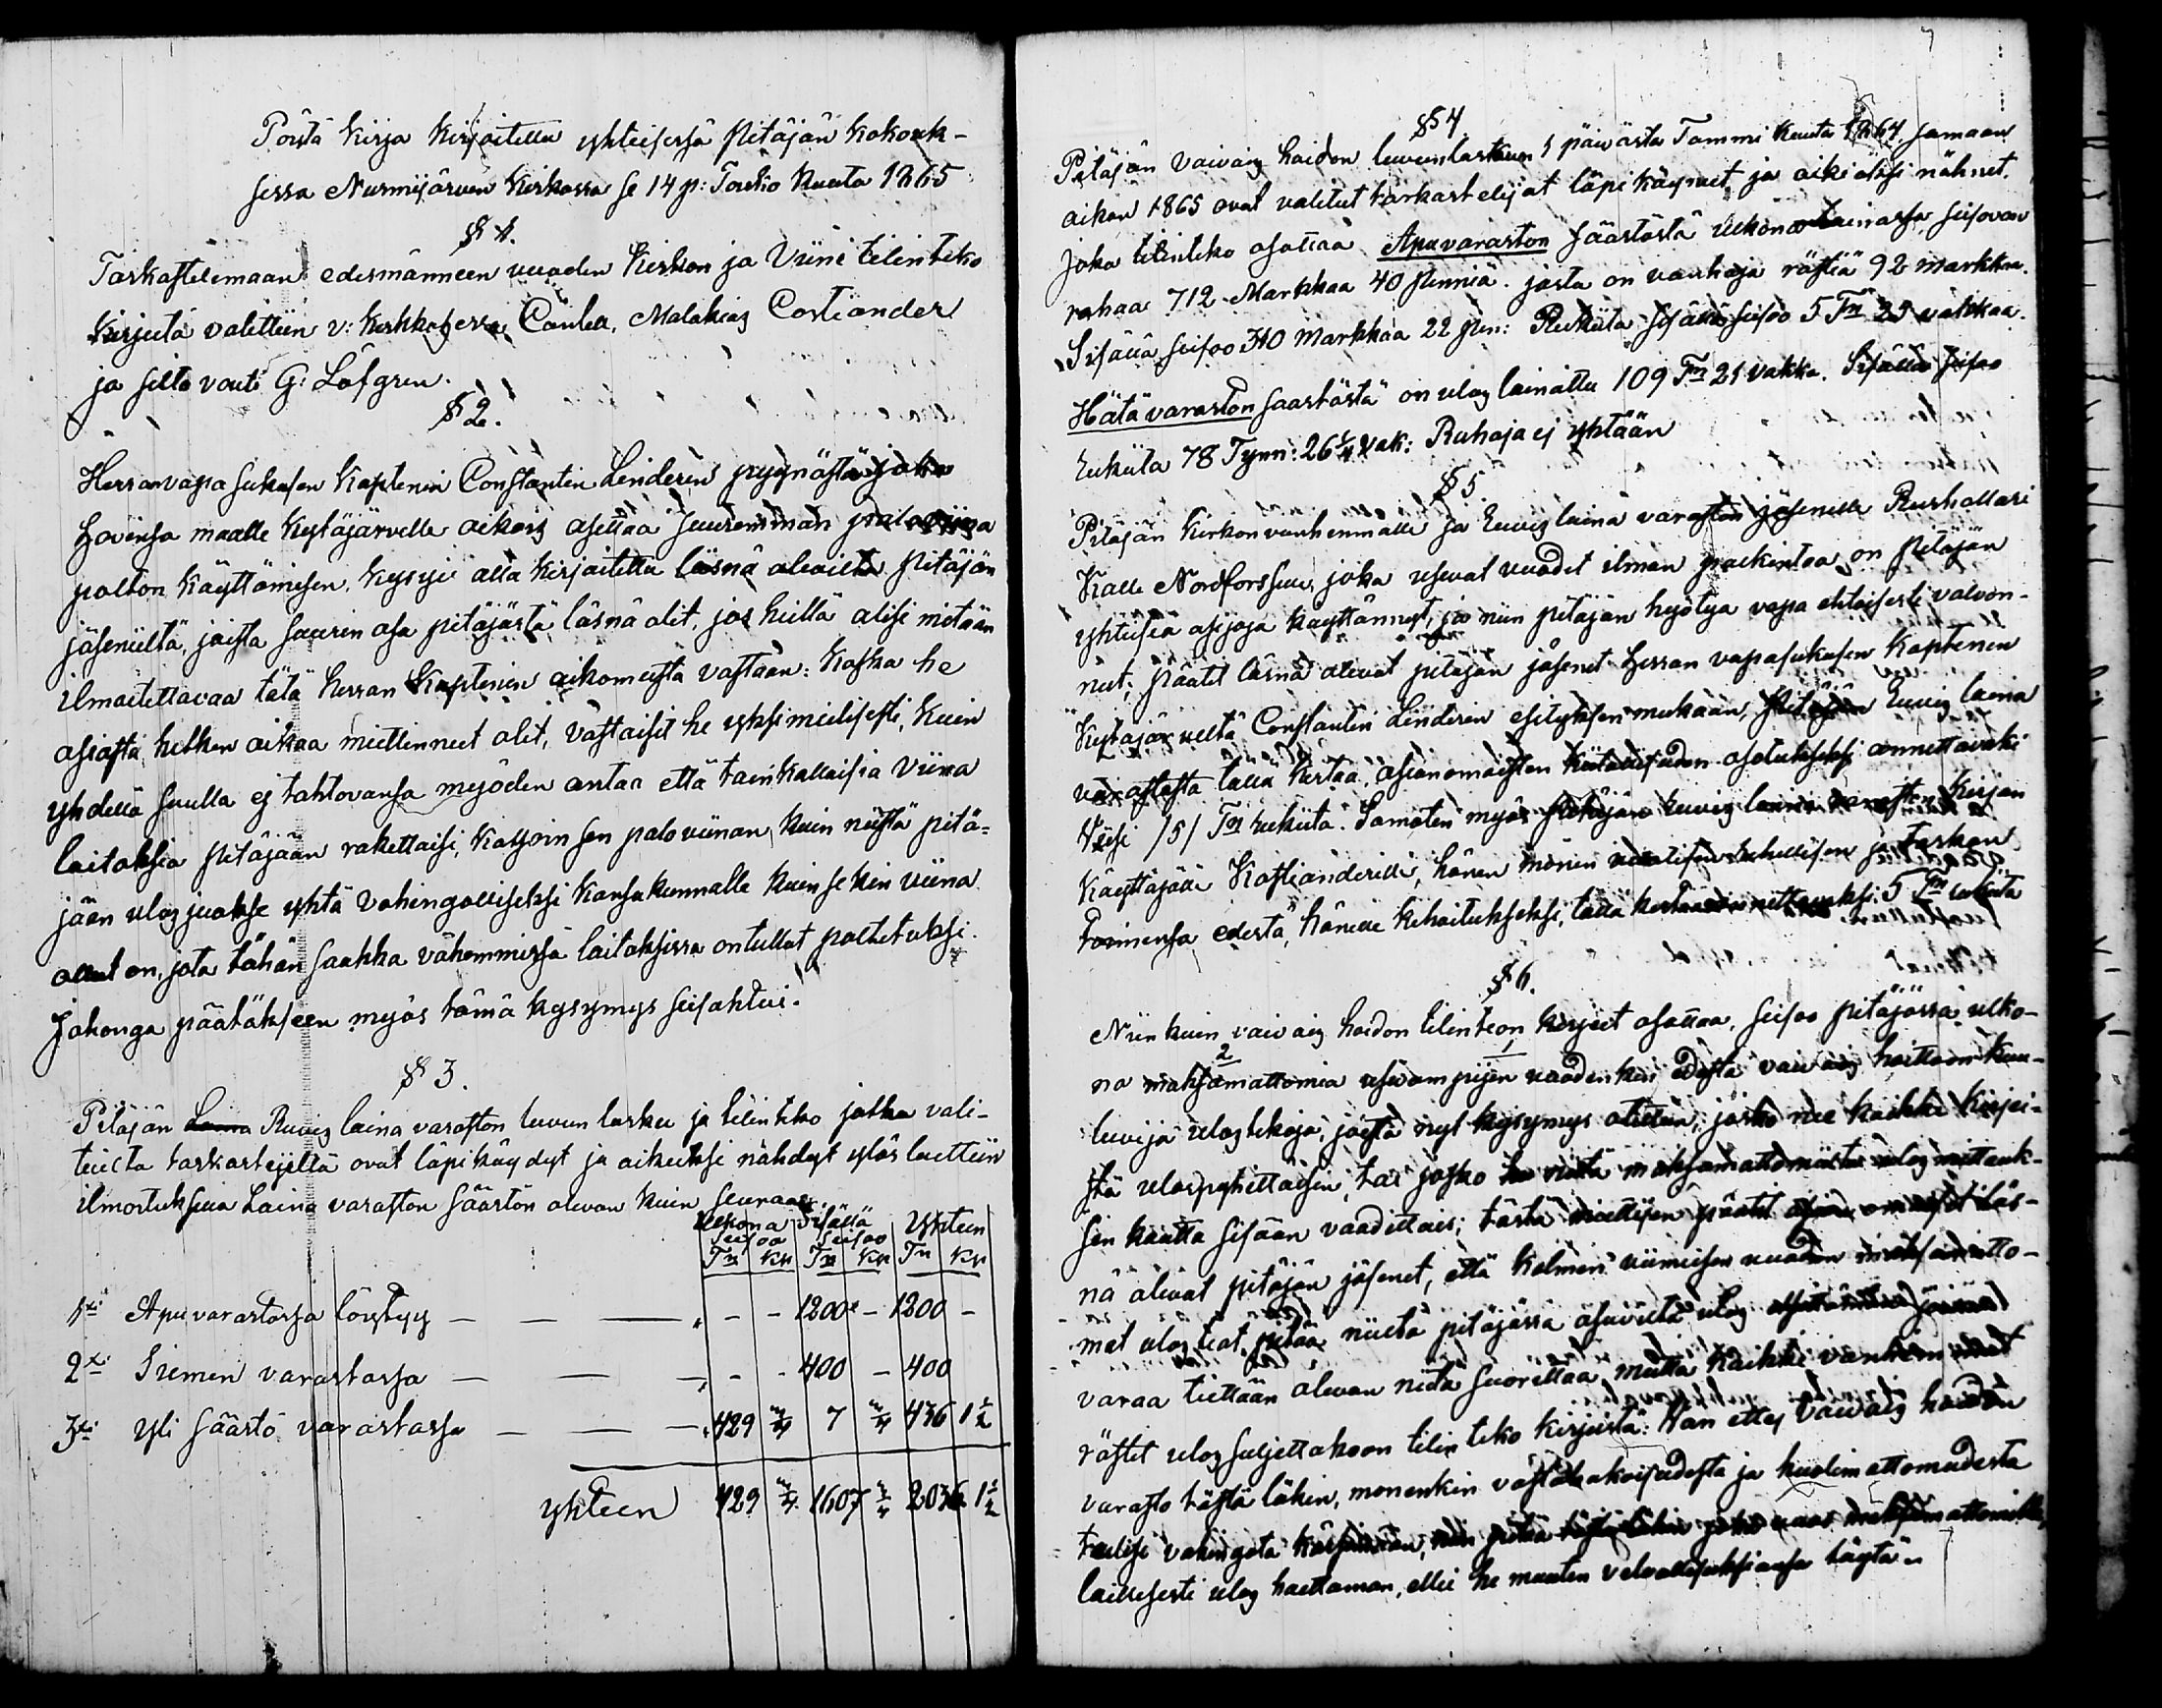 Pöytä kirja kirjoitettu yhteisessä Pitäjän kokouk-
sessa Nurmijärven kirkossa se 14 p: Touko kuuta 1865
§ 1.
Tarkastelemaan edesmänneen vuoden kirkon ja Viini tilinteko
kirjuta valittiin v: kirkkoherra Caulen, Malakias Costiander
ja silta vouti G: Löfgren.
§ 2.
Herran vapa sukusen Kaptenin Constantin Linderin pyynöstä joka
hovinsa maalle Kytäjärvelle aikois asettaa suuremman palo viina
polton käyttämisen, kysyi alla kirjoitettu läsnä olevilta Pitäjän
jäseniltä, joista suurin osa pitäjästä läsnä olit, jos heillä olisi mitään
ilmoitettavaa tätä herran Kaptenin aikomusta vastaan: Koska he
asiasta hetken aikaa miettinneet olit, vastaisit he yksimielisesti, kuin
yhdellä suulla ej tahtovansa myöden antaa että taenkallaisia Viina
laitoksia Pitäjään rakettaisi, katsoin sen paloviinan, kuin niistä pitä-
jään ulos juokse yhtä vahingolliseksi kansakunnalle kuin se kin viina
ollut on, jota tähän saakka vähemmissä laitoksissa on tullut poltetuksi.
Johonga päätökseen myös tämä kysymys seisahtui.
§ 3.
Pitäjän Ruvis laina varaston luvun lasku ja tilinteko jotka vali-
tuista tarkastejilta ovat läpikäydyt ja oikeeksi nähdyt ylös luettiin
ilmoituksella Laina varaston säästön olevan kuin seuraa.
Ulkona seisoo Sisällä seisoo Yhteen
Tn Kp Tn Kp Tn Kp
1xi Apu varastossa löytyy — — — „ - - 1200 - 1200 -
2xi Siemen varastossa — — — „ - - 400 - 400
3xi Yli säästö varastossa — — — „ 429 3/4 7 3/4 436 1 1/2
yhteen 429 3/4 1607 3/4 2036 1 1/2
§ 4
Pitäjän Vaivais hoidon luvunlaskun 1 päivästä Tammi kuuta 1864 samaan
aikan 1865 ovat valitut tarkastelijat läpi käyneet ja oikiaksi nähnet.
Joka tilinteko osottaa Apuvaraston säästöstä ulkona lainassa seisovan
rahaa 712 Markkaa 40 penniä. josta on vanhoja rästiä 92 markkaa.
Sisällä seisoo 340 Markkaa 22 pen: Rukiita sisällä seisoo 5 Tn 25 vakkaa.
Hätävaraston säästöstä on ulos lainattu 109 Tn 21 vakka. Sisällä seisoo
Rukiita 78 Tynn: 26 1/4 vak: Rahoja ej yhtään
§ 5
Pitäjän Kirkonvanhemmalle ja Ruvis laina varaston jäsenille Rusthollari
Kalle Nordforssille, joka usevat vuodet ilman palkintoa on Pitäjän
yhteisiä asijoja käyttännyt, ja niin pitäjän hyötyä vapa ehtoisesti valvon-
nut, päätit läsnä olevat pitäjän jäsenet Herran vapasukusen Kaptenin
Kytäjärveltä Constantin Linderin esityksen mukaan, Pitäjän Ruvis laina
varastosta tällä kertaa, asianomaisten osotukseksi annettavaksi
Viisi /5/ Tn rukiita. Samoten myös Pitäjän Ruvis laina varaston kirjan
käyttäjälle Kostianderille, hänen monen vuotisen rehellisen ja tarkan
toimensa edestä, hänelle kehoitukseksi, tällä kertaa annettavaksi 5 Tn rukiita
§ 6.
Niin kuin vaivais hoidon tilinteon kirjat osottaa, seisoo pitäjässä ulko-
na maksamattomia usiampijen vuodenkin edestä vaivais hoittoon kuu-
luvija ulostekoja, joista nyt kysymys otettiin, josko nee kaikki kirjoi-
stä ulospyhittäisin, tai josko niitä maksamattomista ulos mittauk-
sen kautta sisään vaadittais; tästä päätit läs-
nä olevat pitäjän jäsenet, että kolmen viimeisen vuoden maksamatto-
mat ulosteot pitää niiltä pitäjässä asuvilta ulos
varaa tiettään olevan niitä suorittaa, mutta kaikki vanhimmat
rästit ulossuljettakoon tilin teko kirjoista: Kan ettej Vaivais hoidon
varasto tästä läkin, monenkin vastahakoisudesta ja huolimattomudesta
tulisi vahingota kärsimään, niin pitää
laillisesti ulos haettaman, ellei he muuten velvollisuksiansa täytä.